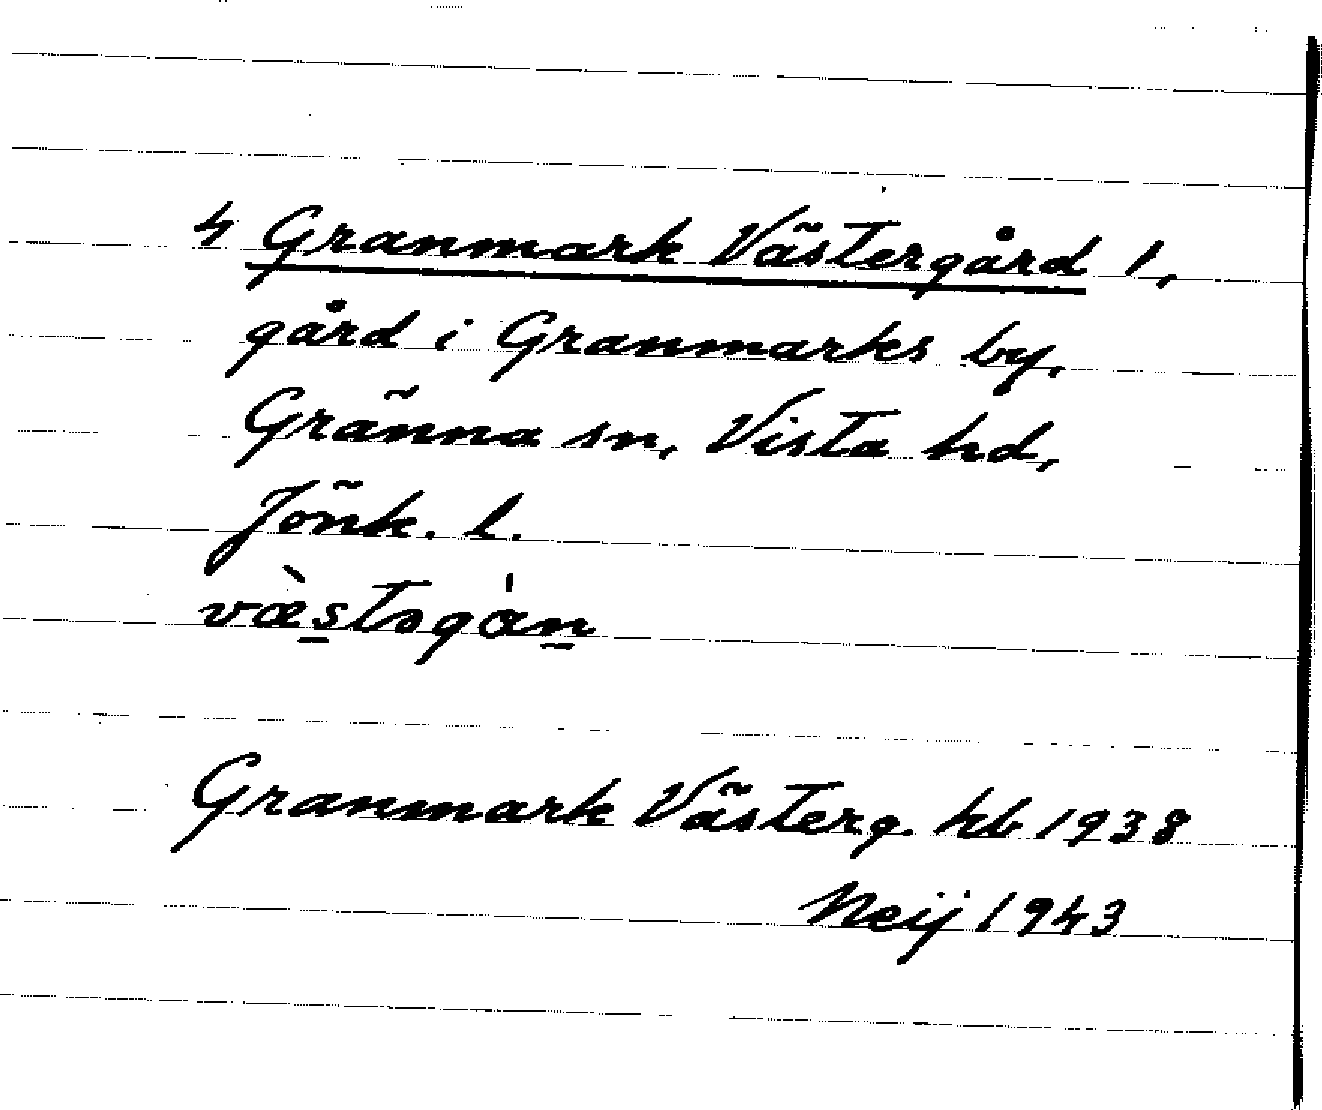 4 Granmark Västergård 1,
gård i Granmarks by,
Gränna sn, Vista hd,
Jönk. l.
Granmark Västerg. hb 1938
Neij 1943